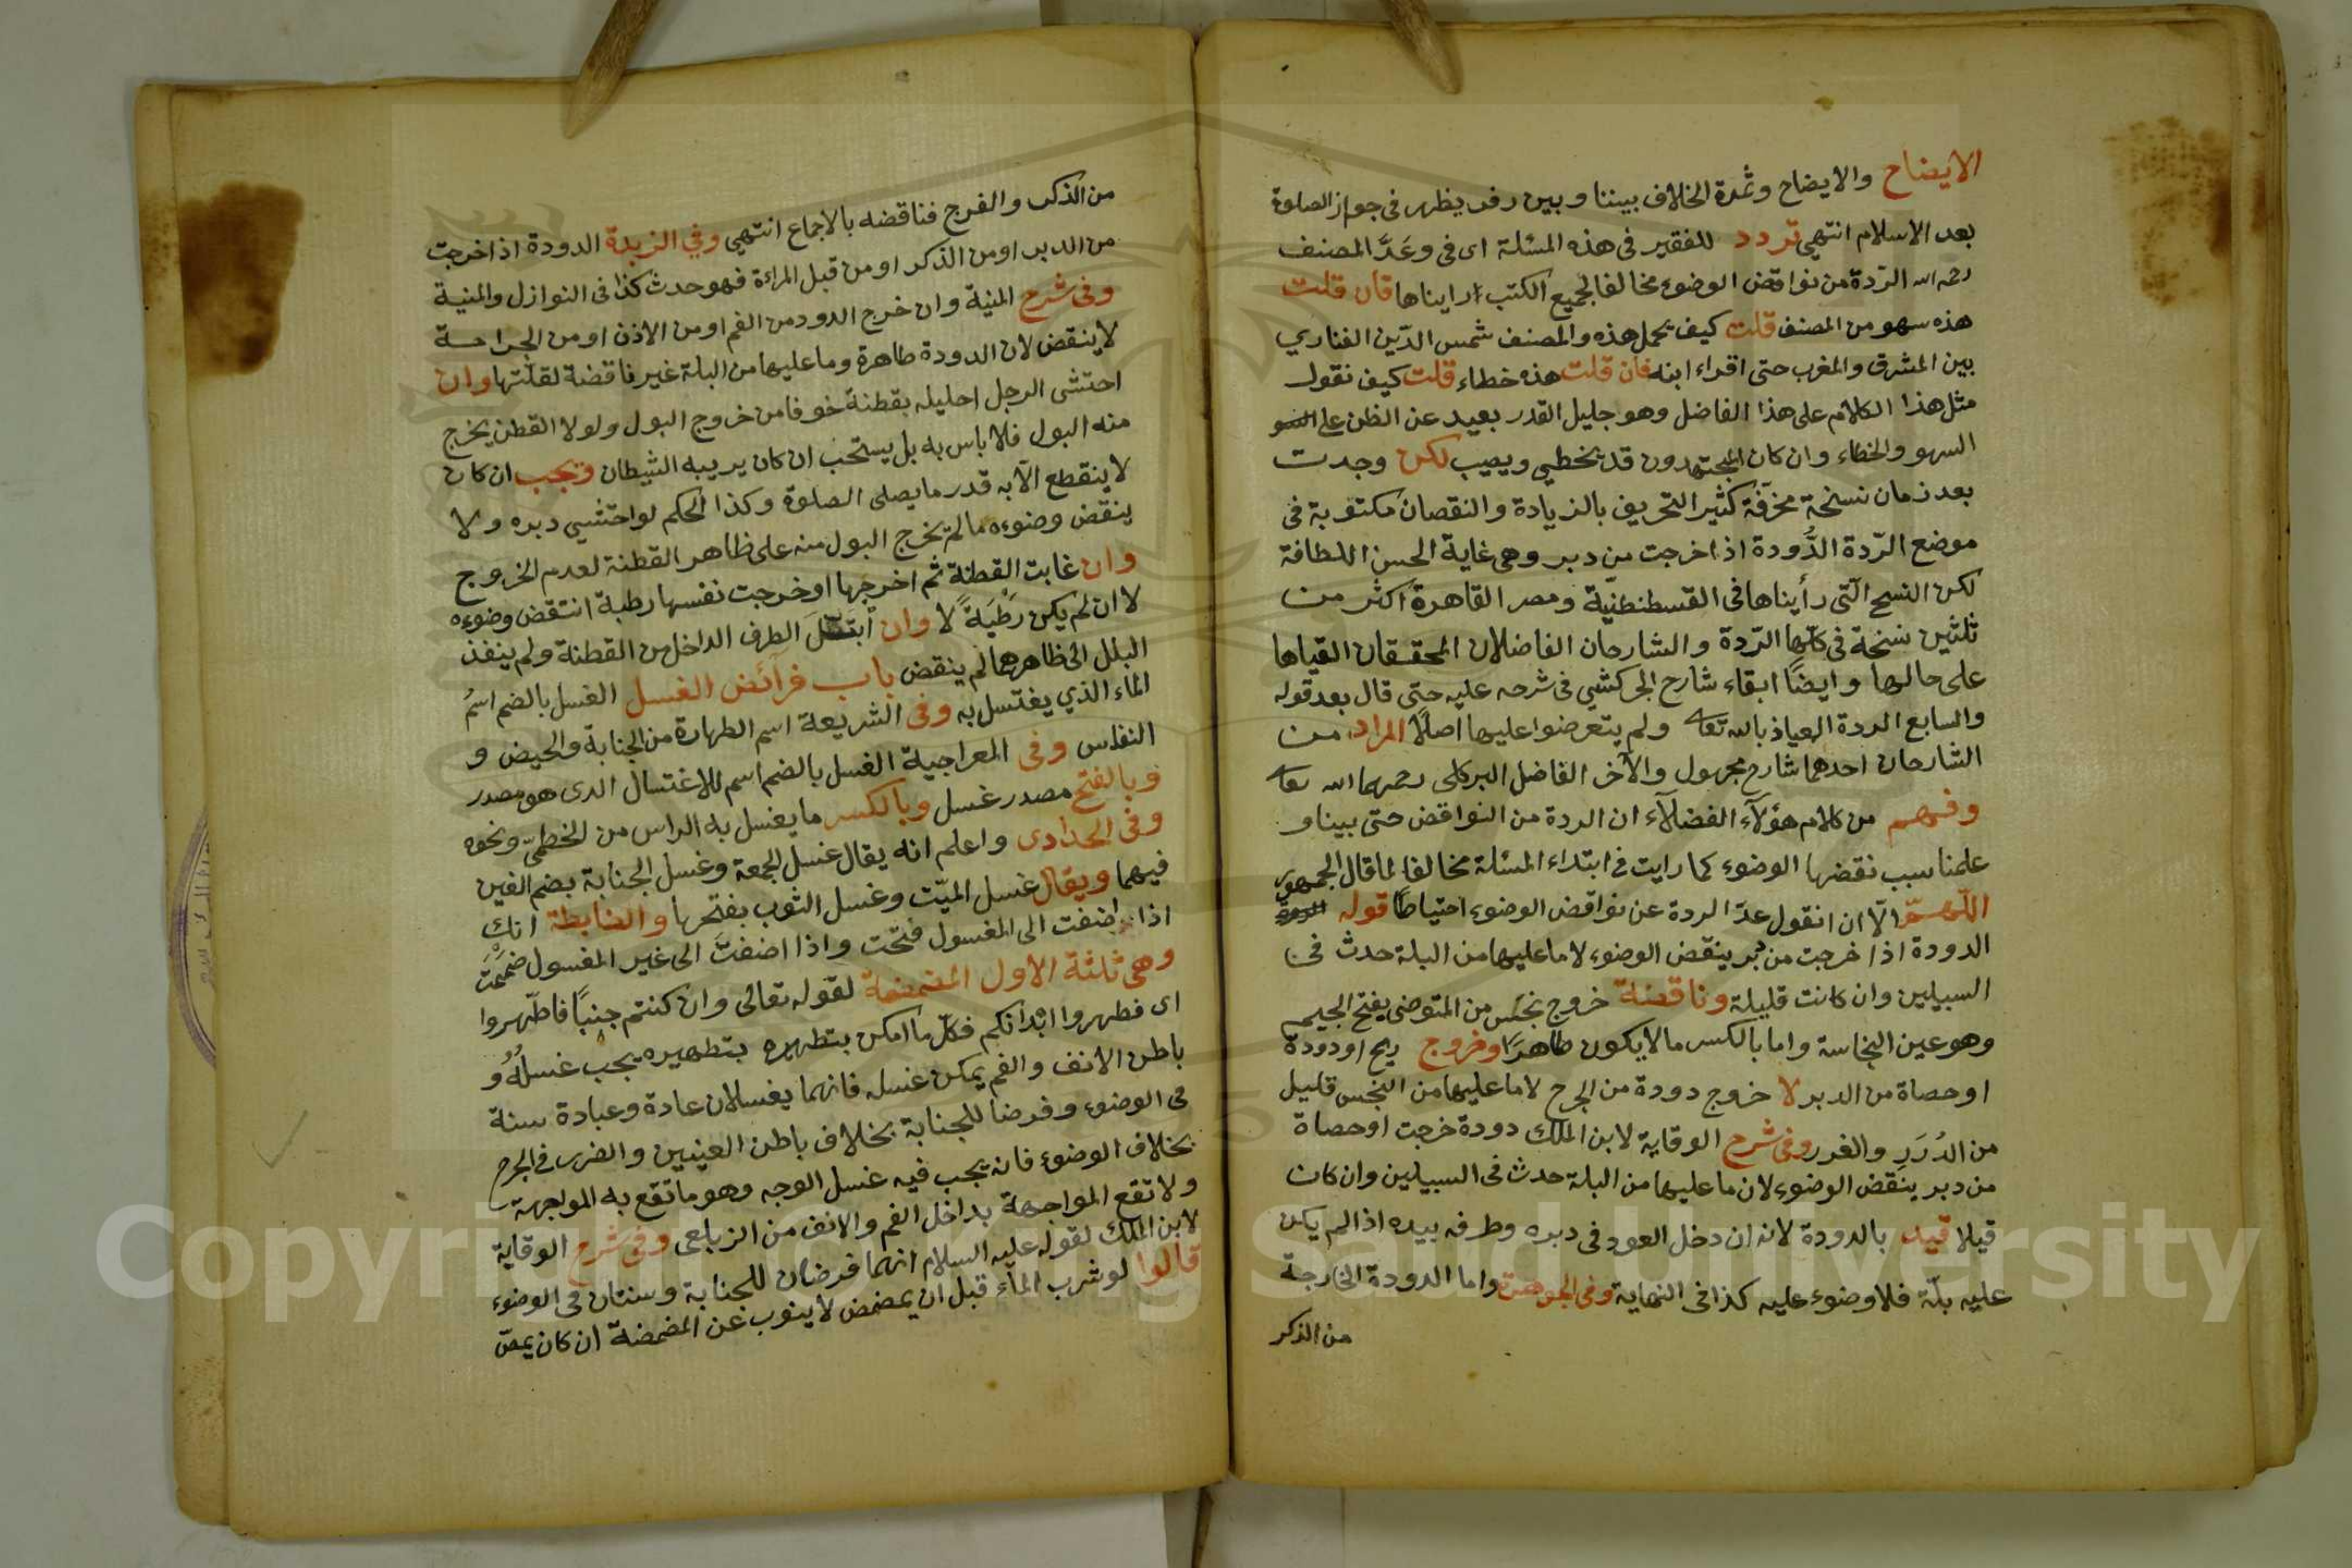 الايضاح والايضاح وثمرة الخلاف بيننا وبين زفر يظهر فى جواز الصلوة
بعد الاسلام انتهى تردد للفقير فى هذه المسئلة اى فى وعَدَّ المصنف
رحمه الله الرّدة من نواقض الوضوء مخالفا لجميع الكتب رايناها فان قلت
هذه سهو من المصنف قلت كيف يحمل هذه والمصنف شمس الدّين الفناري
بين المشرق والمغرب حتى اقراء ابنه فان قلت هذه خطاء قلت كيف نقول
مثل هذا الكلام على هذا الفاضل وهو جليل القدر بعيد عن الظن على
السهو والخطاء وان كان المجتهدون قد يخطئ ويصيب لكن وجدت
بعد زمان نسخة محرّفة كثير التحريف بالزيادة والنقصان مكتوبة فى
موضع الرّدة الدُّودة اذا خرجت من دبر وهى غاية الحسن اللطافة
لكن النسخ الّتى رأيناها فى القسطنطنيّة ومصر القاهرة اكثر من
ثلثين نسخة فى كلّها الرّدة والشارحان الفاضلان المحققان القياها
على حالها وايضًا ابقاء شارح الجركشى فى شرحه عليه حتى قال بعد قوله
والسابع الردة العياذ بالله تعا ولم يتعرضوا عليها اصلًا المراد من
الشارحان احدهما شارح مجهول والآخر الفاضل البركلى رحمهما الله تعا
وفهم من كلام هؤلآء الفضلآء ان الردة من النواقض حتى بينا و
علمنا سبب نقضها الوضوء كما رايت فى ابتداء المسئلة مخالفا لما قال الجمهور
اللّهمّ الّا ان نقول عدّ الردة عن نواقض الوضوء احتياطًا قوله
الدودة اذا خرجت من دبر ينقض الوضوء لا ما عليها من البلة حدث فى
السبيلين وان كانت قليلة وناقضة خروج نجَس من المتوضى بفتح الجيم
وهو عين النجاسة واما بالكسر ما لا يكون طاهرًا وخروج ريح او دودة
او حصاة من الدبر لا خروج دودة من الجرح لا ما عليها من النجس قليل
من الدُرَرِ والغرر وفى شرح الوقاية لابن الملك دودة خرجت او حصاة
من دبر ينقض الوضوء لان ما عليها من البلة حدث فى السبيلين وان كان
قيلا قيد بالدودة لانه ان دخل العود فى دبره وطرفه بيده اذا لم يكن
عليه بلّة فلا وضوء عليه كذا فى النهاية وفى الجوهرة واما الدودة الخارجة
من الذكر
من الذكر والفرج فناقضه بالاجماع انتهى وفى الزبدة الدودة اذا خرجت
من الدبر او من الذكر او من قبل المراءة فهو حدث كذا فى النوازل والمنية
وفى شرح المنية وان خرج الدود من الفم او من الاذن او من الجراحة
لا ينقض لان الدودة طاهرة وما عليها من البلة غير ناقضة لقلّتها وان
احتشى الرجل احليله بقطنة خوفا من خروج البول ولولا القطن يخرج
منه البول فلا باس به بل يستحب ان كان يريبه الشيطان ويجب ان كان
لا ينقطع الّا به قدر ما يصلى الصلوة وكذا الحكم لو احتشى دبره ولا
ينقض وضوءه ما لم يخرج البول منه على ظاهر القطنة لعدم الخروج
وان غابت القطنة ثم اخرجها او خرجت نفسها رطبة انتقض وضوءه
لا ان لم يكن رَطْبَةً لا وان ابتلّ الطرف الداخل من القطنة ولم ينفذ
البلل الى ظاهرها لم ينقض باب فرائض الغسل الغسل بالضم اسمُ
الماء الذي يغتسل به وفى الشريعة اسم الطهارة من الجنابة والحيض و
النفاس وفى المعراجية الغسل بالضم اسم للاغتسال الذى هو مصدر
وبالفتح مصدر غسل وبالكسر ما يغسل به الراس من الخطمىّ ونحوه
وفى الحدادى واعلم انه يقال غسل الجمعة وغسل الجنابة بضم الغين
فيهما ويقال غسل الميّت وغسل الثوب بفتحها والضابطة انك
اذا اضفت الى المغسول فتحت واذا اضفتَ الى غير المغسول ضممت
وهى ثلثة الاول المضمضة لقوله تعالى وان كنتم جنبًا فاطّهروا
اى فطهروا ابدانكم فكلّ ما امكن بتطهره بتطهيره يجب غسلُهُ و
باطن الانف والفم يمكن غسله فانهما يغسلان عادة وعبادة سنة
فى الوضوء وفرضا للجنابة بخلاف باطن العينين والضرر فى الجرح
بخلاف الوضوء فانه يجب فيه غسل الوجه وهو ما تقع به المواجهة
ولا تقع المواجهة بداخل الفم والانف من الزيلعى وفى شرح الوقاية
لابن الملك لقوله عليه السلام انهما فرضان للجنابة وسنتان فى الوضوء
قالوا لو شرب الماء قبل ان يمضمض لا ينوب عن المضمضة ان كان يمصّ
Copyright © King Saud University